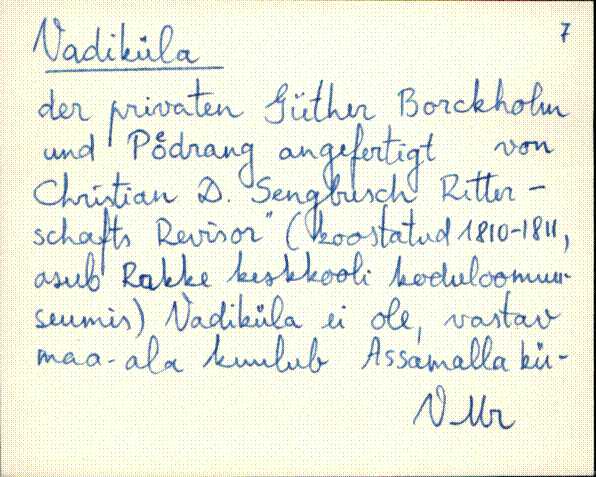 Vadiküla 7
der privaten Güther Borckholm
und Pödrang angefertigt von
Christian D. Sengbusch Ritter-
schafts Revisor" (koostatud 1810-1811,
asub Rakke keskkooli koduloomuu-
seumis) Vadiküla ei ole, vastav
maa-ala kuulub Assamalla kü-
V Mr